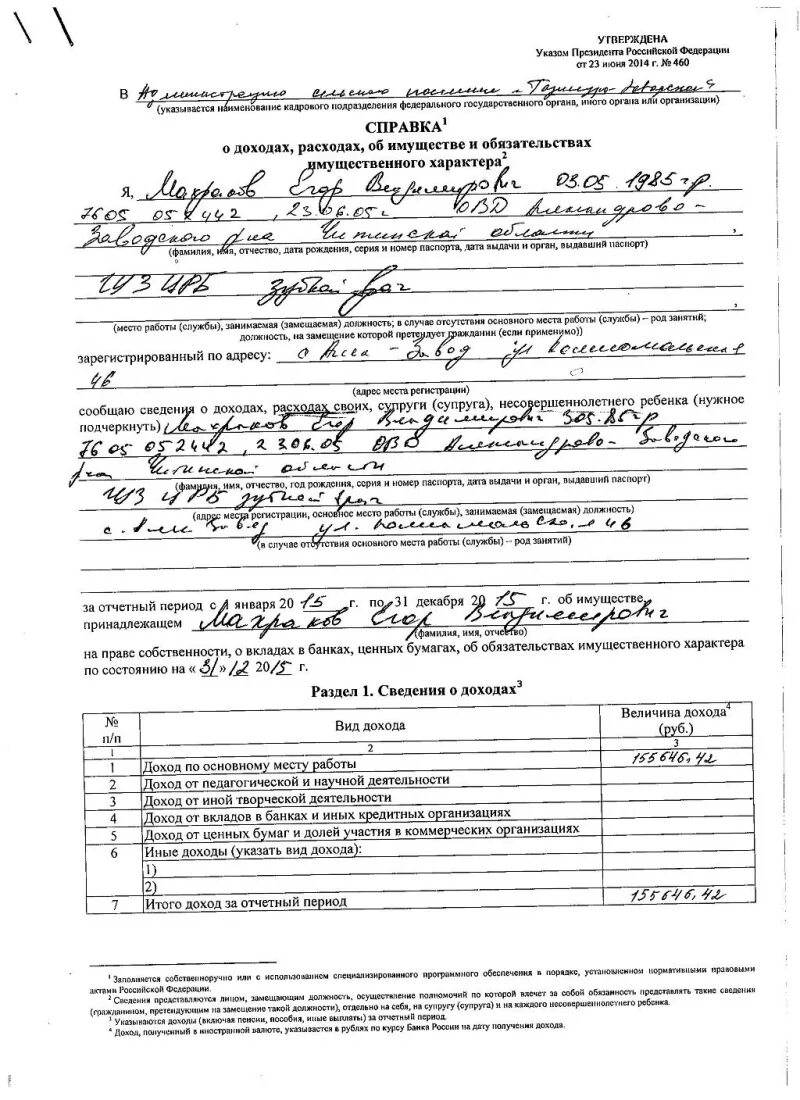 УТВЕРЖДЕНА
Указом Президента Российской Федерации
от 23 июня 2014 г. № 460
В Администрацию сельского поселения
(указывается наименование кадрового подразделения федерального государственного органа, иного органа или организации)
СПРАВКА¹
о доходах, расходах, об имуществе и обязательствах
имущественного характера²
Я, Махраков Егор Владимирович 03.05.1985 г.р.
7605 052442, 23.06.05г ОВД Александрово-
Заводского р-на Читинской области ,
(фамилия, имя, отчество, дата рождения, серия и номер паспорта, дата выдачи и орган, выдавший паспорт)
ЦРБ зубной врач
,
(место работы (службы), занимаемая (замещаемая) должность; в случае отсутствия основного места работы (службы) – род занятий;
должность, на замещение которой претендует гражданин (если применимо))
зарегистрированный по адресу: с Завод ул Комсомольская
46
(адрес места регистрации)
сообщаю сведения о доходах, расходах своих, супруги (супруга), несовершеннолетнего ребенка (нужное
подчеркнуть) Махраков Егор Владимирович 85 г.р
7605 052442, 23.06.05 ОВД Александрово-Заводского
р-на Читинской области
(фамилия, имя, отчество, год рождения, серия и номер паспорта, дата выдачи и орган, выдавший паспорт)
ЦРБ зубной врач
(адрес места регистрации, основное место работы (службы), занимаемая (замещаемая) должность)
с. Завод ул. Комсомольская 46
(в случае отсутствия основного места работы (службы) – род занятий)
за отчетный период с 1 января 2015 г. по 31 декабря 2015 г. об имуществе,
принадлежащем Махраков Егор Владимирович
(фамилия, имя, отчество)
на праве собственности, о вкладах в банках, ценных бумагах, об обязательствах имущественного характера
по состоянию на «31» 12 2015 г.
Раздел 1. Сведения о доходах³
№ п/п Вид дохода Величина дохода⁴ (руб.)
1 2 3
1 Доход по основному месту работы 155646,42
2 Доход от педагогической и научной деятельности
3 Доход от иной творческой деятельности
4 Доход от вкладов в банках и иных кредитных организациях
5 Доход от ценных бумаг и долей участия в коммерческих организациях
6 Иные доходы (указать вид дохода):
1)
2)
7 Итого доход за отчетный период 155646,42
¹ Заполняется собственноручно или с использованием специализированного программного обеспечения в порядке, установленном нормативными правовыми
актами Российской Федерации.
² Сведения представляются лицом, замещающим должность, осуществление полномочий по которой влечет за собой обязанность представлять такие сведения
(гражданином, претендующим на замещение такой должности), отдельно на себя, на супругу (супруга) и на каждого несовершеннолетнего ребенка.
³ Указываются доходы (включая пенсии, пособия, иные выплаты) за отчетный период.
⁴ Доход, полученный в иностранной валюте, указывается в рублях по курсу Банка России на дату получения дохода.